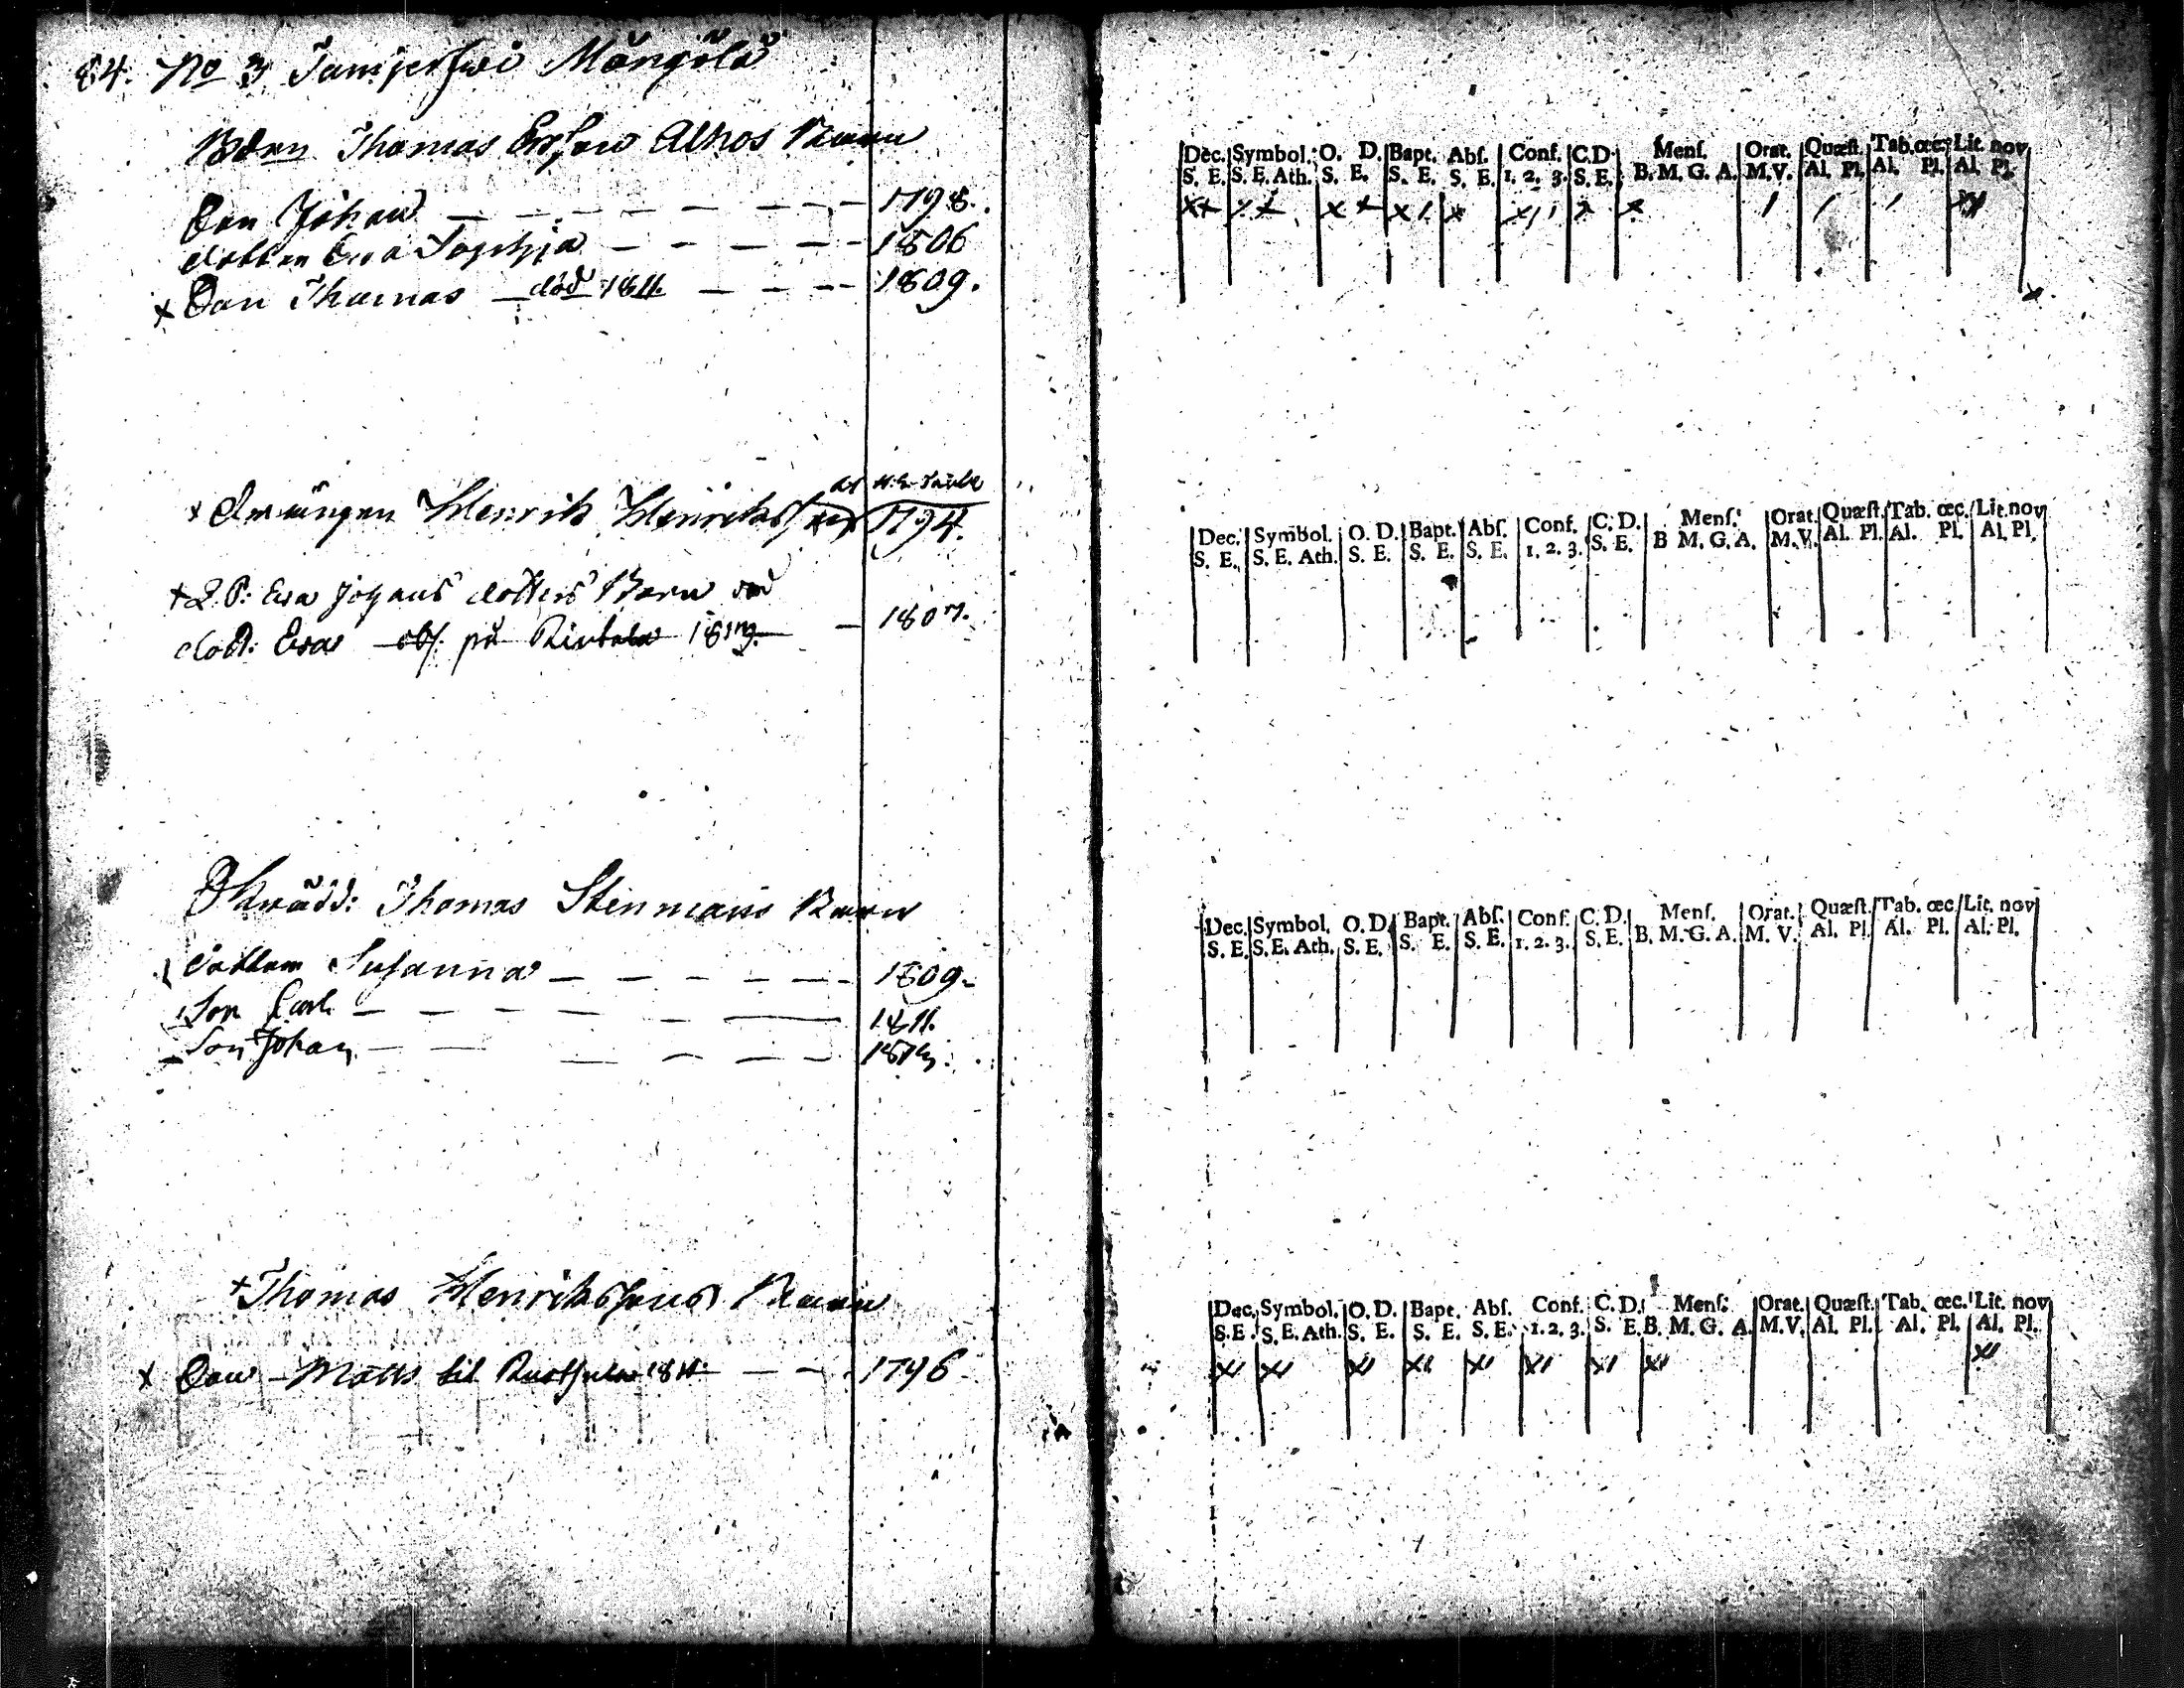 84. No 3 Mångölä
Thomas Alhos Barn
Son Johan 1798.
dotter Eva Sophia 1806
x Son Thomas död 1811 1809.
x Drängen Henrik 1794.
+ Q. P: Eva Johans dotters Barn
dott: Eva på 1807.
Skrädd: Thomas Stenmans Barn
dotter Susanna 1809
Son Carl 1811.
Son Johan
+ Thomas Henrikssons Barn
x Son Matts til 1811 1796
Dec. Symbol. O. D. Bapt. Abſ. Conf. C.D. Menſ. Orat. Quæſt. Tab. œc. Lit. nov
S. E. S. E. Ath. S. E. S. E. S. E. 1. 2. 3. S. E. B. M. G. A. M. V. Al. Pl. Al. Pl. Al. Pl.
Dec. Symbol. O. D. Bapt. Abſ. Conf. C. D. Menſ. Orat. Quæſt. Tab. œc. Lit. nov
S. E. S. E. Ath. S. E. S. E. S. E. 1. 2. 3. S. E. B M. G. A. M. V. Al. Pl. Al. Pl. Al. Pl.
Dec. Symbol. O. D. Bapt. Abſ. Conf. C. D. Menſ. Orat. Quæſt. Tab. œc. Lit. nov
S. E. S. E. Ath. S. E. S. E. S. E. 1. 2. 3. S. E. B. M. G. A. M. V. Al. Pl. Al. Pl. Al. Pl.
Dec. Symbol. O. D. Bapt. Abſ. Conf. C. D. Menſ. Orat. Quæſt. Tab. œc. Lit. nov
S. E. S. E. Ath. S. E. S. E. S. E. 1. 2. 3. S. E. B. M. G. A. M. V. Al. Pl. Al. Pl. Al. Pl.